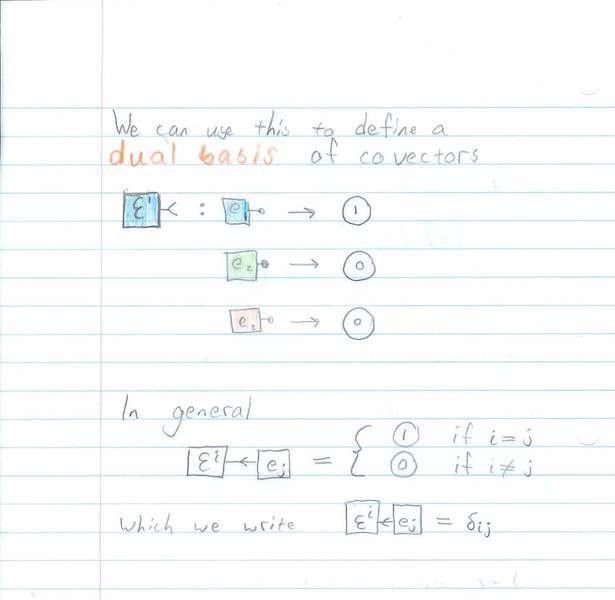 We can use this to define a
dual basis of covectors
ε¹ : e₁ → 1
e₂ → 0
e₂ → 0
In general
εⁱ eⱼ = { 1 if i = j
0 if i ≠ j
which we write εⁱ eⱼ = δᵢⱼ